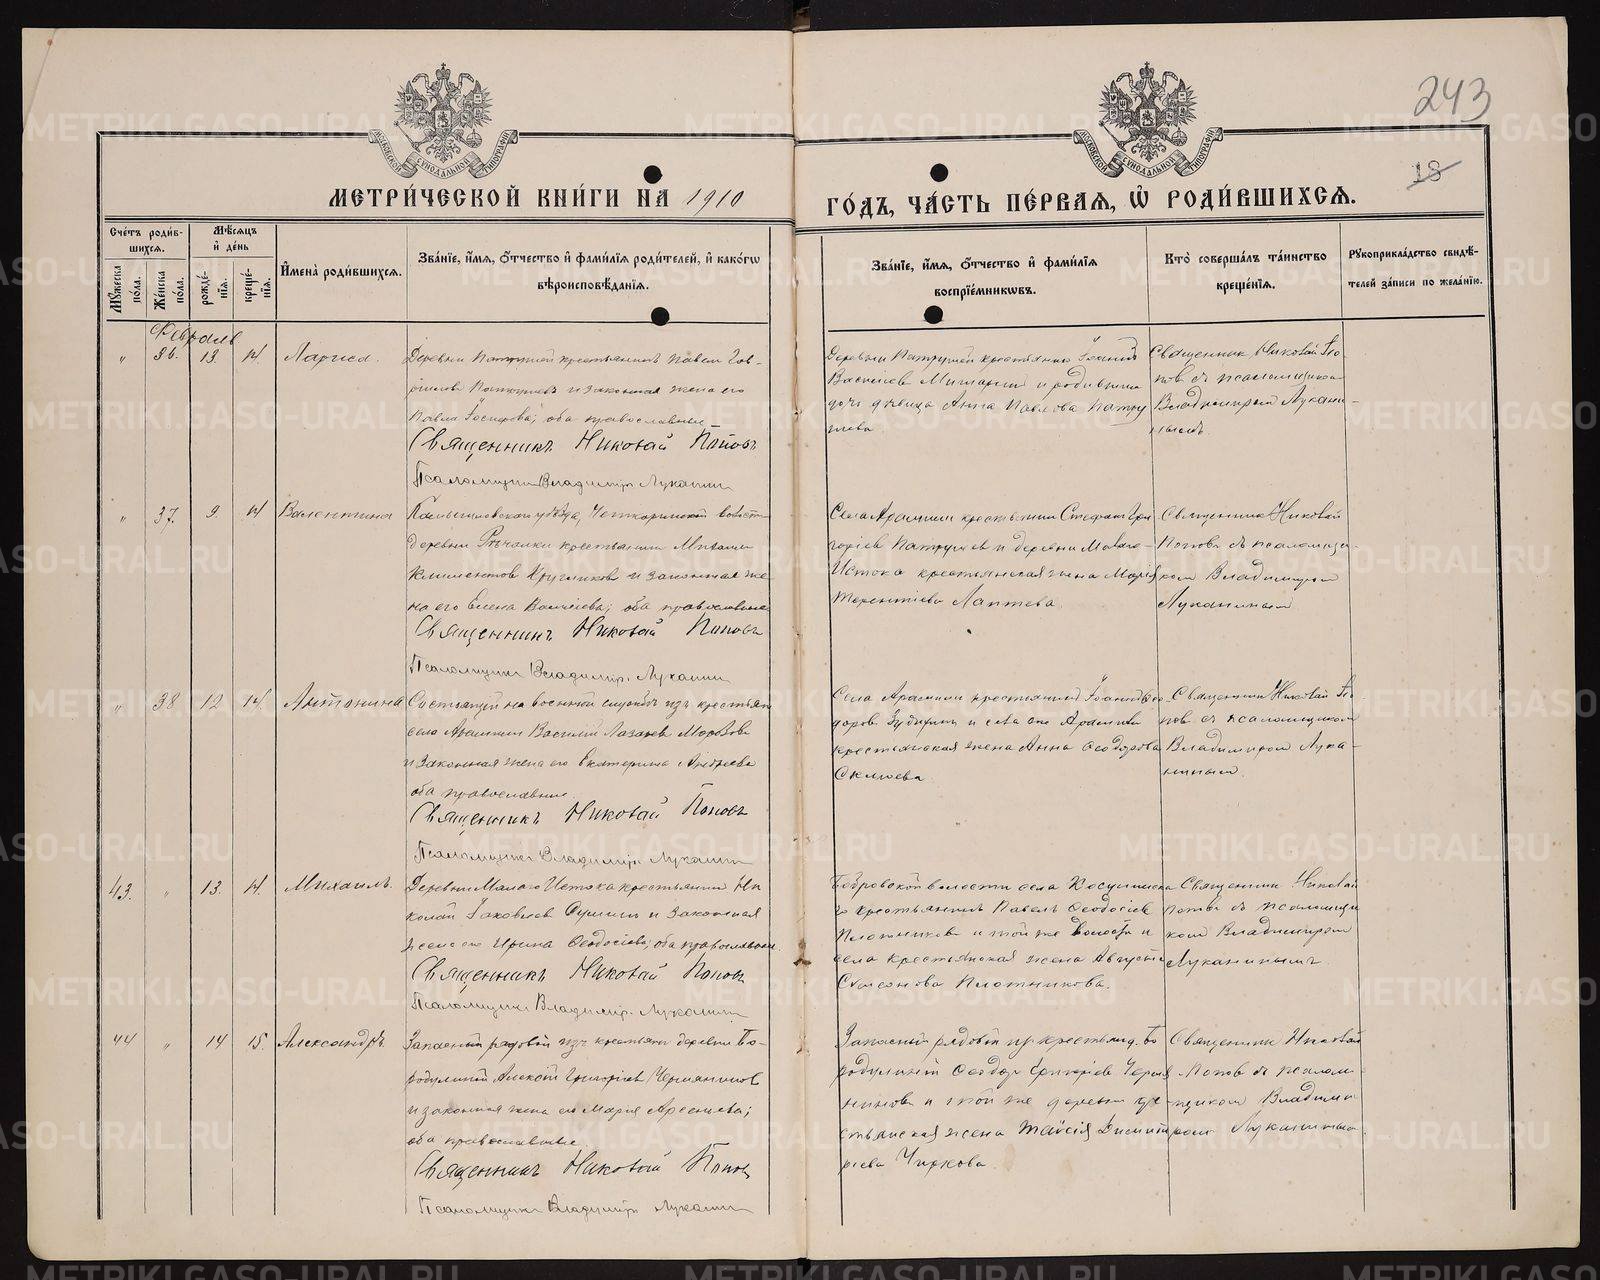 243
18
МОСКОВСКОЙ СѴНОДАЛЬНОЙ ТИПОГРАФІИ
МОСКОВСКОЙ СѴНОДАЛЬНОЙ ТИПОГРАФІИ
МЕТРИ́ЧЕСКОЙ КНИ́ГИ НА 1910
ГО́ДЪ, ЧА́СТЬ ПЕ́РВАЯ, Ѡ҆ РОДИ́ВШИХСЯ.
Сче́тъ роди́в-
шихся.
Мꙋ́жеска по́ла.
Же́нска по́ла.
Мѣ́сяцъ
и҆ де́нь
рожде́-
нїя.
креще́-
нїя.
И҆мена̀ роди́вшихся.
Зва́нїе, и҆́мя, ѻ҆́тчество и҆ фами́лїя роди́телей, и҆ како́гѡ
вѣроисповѣ́данїя.
Зва́нїе, и҆́мя, ѻ҆́тчество и҆ фами́лїя
воспрїе́мникѡвъ.
Кто̀ соверша́лъ та́инство
креще́нїя.
Рꙋкоприкла́дство свидѣ́-
телей за́писи по жела́нїю.
Февраль
" 36. 13. 14. Лариса.
Деревни Патрушей крестьянинъ Павелъ Гав-
рииловъ Патрушевъ и законная жена его
Павла Іосифова; оба православные
Священникъ Николай Поповъ
Псаломщикъ Владиміръ Луканин
Деревни Патрушей крестьянинъ Іоаннъ
Васильевъ и родившихъ
дочь дѣвица Анна Павлова Патру
шева
Священник Николай По-
повъ съ псаломщикомъ
Владимиромъ Лукани-
нымъ
" 37. 9. 14 Валентина
уѣзда, волости
деревни крестьянинъ Михаилъ
Климентовъ Кругликовъ и законная же
на его Елена Васильева; оба православные
Священникъ Николай Поповъ
Псаломщикъ Владиміръ Луканин
Села Арамили крестьянинъ Стефанъ Гри
горіевъ Патрушев и деревни Малаго-
Истока крестьянская жена Марія
Терентіева Лаптева.
Священникъ Николай
Поповъ съ псаломщи-
комъ Владимиромъ
Луканинымъ
" 38 12 14. Антонина
Состоящій на военной службѣ изъ крестьянъ
села Арамили Василій Лазаревъ
и законная жена его Екатерина Андреева
оба православные.
Священникъ Николай Поповъ
Псаломщикъ Владиміръ Луканин
Села Арамили крестьянинъ Іоаннъ Ѳео
доровъ и села же Арамили
крестьянская жена Анна Ѳеодорова
Священник Николай По-
повъ съ псаломщиком
Владимиром Лука-
нинымъ.
43. " 13. 14. Михаилъ.
Деревни Малаго Истока крестьянинъ Ни
колай Іаковлевъ и законная
жена его Ирина Ѳеодосіева; оба православные.
Священникъ Николай Поповъ
Псаломщикъ Владиміръ Луканин
Бобровской волости села
го крестьянинъ Павелъ Ѳеодосіевъ
Плотниковъ и той же волости и
села крестьянская жена
Симеонова Плотникова.
Священникъ Николай
Поповъ съ псаломщи
комъ Владимиромъ
Луканинымъ.
44 " 14 15. Александръ.
Запасный рядовой изъ крестьянъ деревни Бо-
родулиной Алексій Григоріевъ Чермяниновъ
и законная жена его Марія Арсеніева;
оба православные.
Священникъ Николай Поповъ
Псаломщикъ Владиміръ Луканин
Запасный рядовой изъ крестьян д. Бо
родулиной Ѳеодоръ Григоріевъ Чермя
ниновъ и той же деревни кре-
стьянская жена Таисія Димит
ріева Чиркова.
Священникъ Николай
Поповъ съ псалом-
щикомъ Владими-
ромъ Луканинымъ.
METRIKI.GASO-URAL.RU